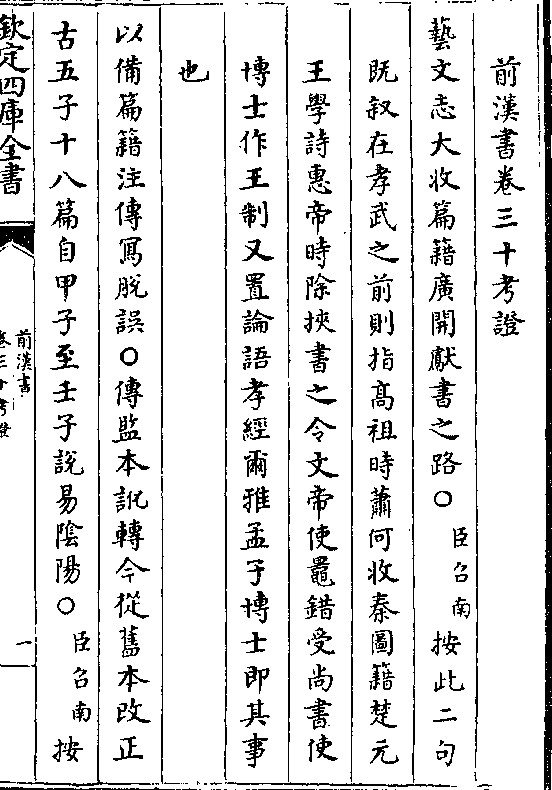 前漢書卷三十考證
藝文志大收篇籍廣開獻書之路○臣召南按此二句
既叙在孝武之前則指髙祖時蕭何收秦圖籍楚元
王學詩惠帝時除挾書之令文帝使鼂錯受尚書使
博士作王制又置論語孝經爾雅孟子博士即其事
也
以備篇籍注傳寫脱誤○傳監本訛轉今從舊本改正
古五子十八篇自甲子至壬子說易隂陽○臣召南按
欽定四庫全書
前漢書
卷三十考證
一